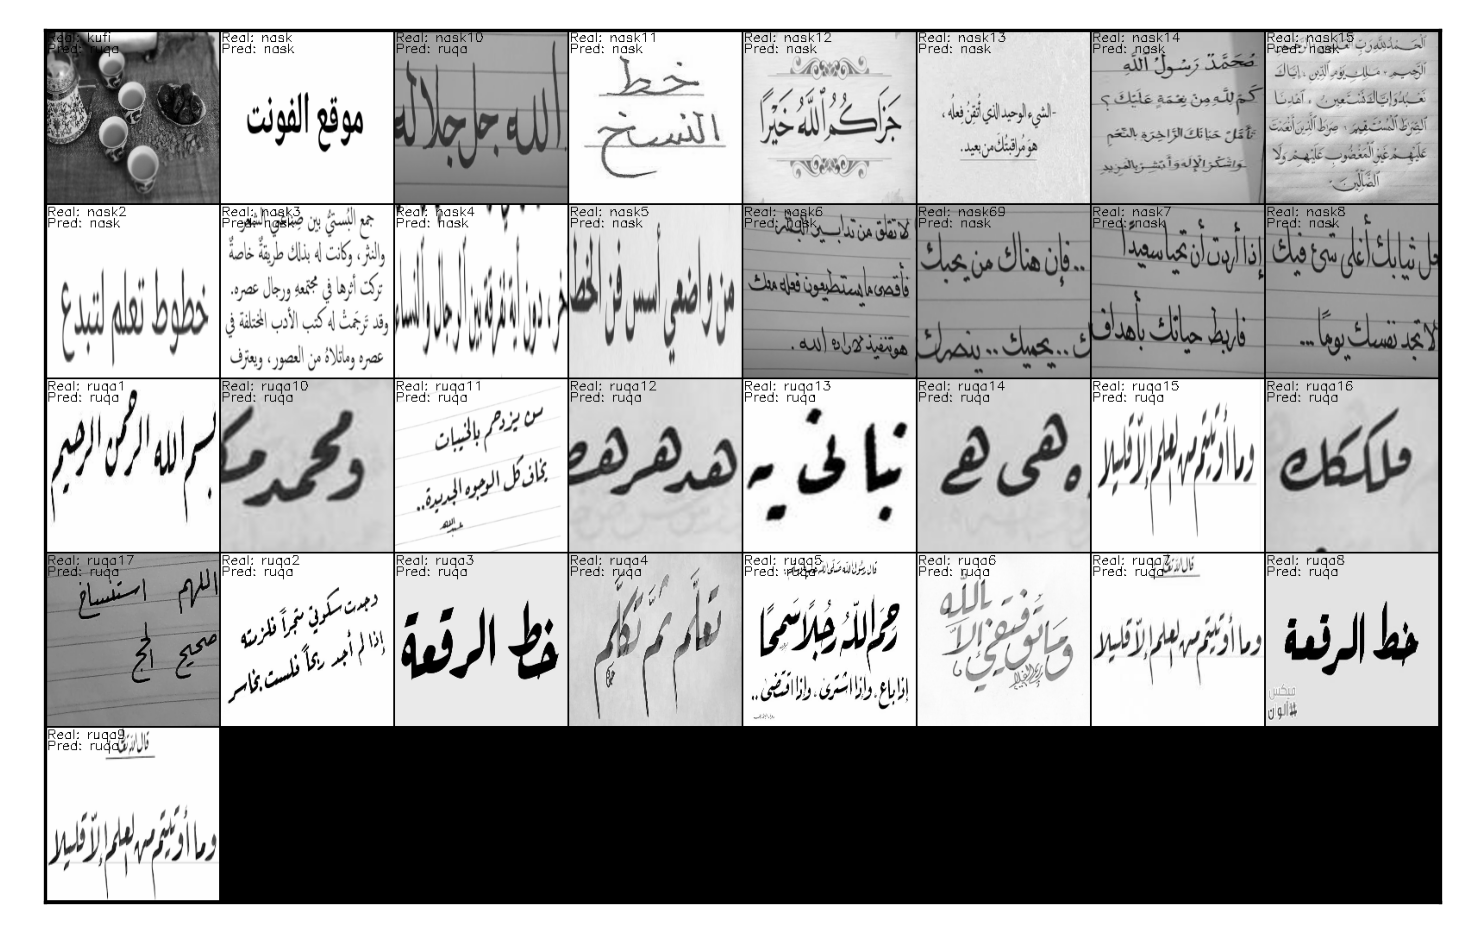 Real: kufi
Pred: ruqa
Real: nask
Pred: nask
موقع الفونت
Real: nask10
Pred: ruqa
الله جل جلاله
Real: nask11
Pred: nask
خط
النسخ
Real: nask12
Pred: nask
جَزَاكُمُ اللَّهُ خَيْرًا
Real: nask13
Pred: nask
-الشيء الوحيد الذي أتقنُ فِعلُه ،
هوَ مُراقبتُكَ من بعيد.
Real: nask14
Pred: nask
مُحَمَّدٌ رَسُولُ اللَّهِ
كَمْ لِلَّهِ مِنْ نِعْمَةٍ عَلَيْكَ ؟
تَأَمَّلْ حَيَاتَكَ الزَّاخِرَةِ بِالنِّعَمِ
وَاشْكُرِ الْإِلَهَ وَأَبْشِرْ بِالْمَزِيدِ
Real: nask15
Pred: nask
الحَمْدُ لِلَّهِ رَبِّ
الرَّحِيمِ . مَلِكِ يَوْمِ الدِّينِ . إِيَّاكَ
نَعْبُدُ وَإِيَّاكَ نَسْتَعِينُ . اهْدِنَا
الصِّرَاطَ الْمُسْتَقِيمَ . صِرَاطَ الَّذِينَ أَنْعَمْتَ
عَلَيْهِمْ غَيْرِ الْمَغْضُوبِ عَلَيْهِمْ وَلَا
الضَّالِّينَ.
Real: nask2
Pred: nask
خطوط تعلم لتبدع
Real: nask3
Pred: nask
جمع البُستيُّ بين
والنثر ، وكانت له بذلك طريقةٌ خاصةٌ
تركت أثرها في مجتمعهِ ورجال عصره.
وقد تَرجَمتْ له كتب الأدب المختلفة في
عصره وماتلاهُ من العصور ، ويعترف
Real: nask4
Pred: nask
دون أية تفرقة بين الرجال والنساء
Real: nask5
Pred: nask
من واضعي أسس فن الخط
Real: nask6
Pred: nask
لا تقلق من تدابير البشر
فأقصى ما يستطيعون فعله معك
هو تنفيذ لإرادة الله .
Real: nask69
Pred: nask
.. فإن هناك من يحبك
ك .. يحميك .. ينصرك
Real: nask7
Pred: nask
إذا أردت أن تحيا سعيداً
فاربط حياتك بأهداف
Real: nask8
Pred: nask
ثيابك أغلى شئ فيك
لا تجد نفسك يومًا ...
Real: ruqa1
Pred: ruqa
بسم الله الرحمن الرحيم
Real: ruqa10
Pred: ruqa
ومحمد مك
Real: ruqa11
Pred: ruqa
من يزدحم بالخيبات
يخاف كل الوجوه الجديدة..
Real: ruqa12
Pred: ruqa
هدهرهص
Real: ruqa13
Pred: ruqa
نبا نى يه
Real: ruqa14
Pred: ruqa
ه همى هے
Real: ruqa15
Pred: ruqa
وما أوتيتم من العلم إلّا قليلا
Real: ruqa16
Pred: ruqa
Real: ruqa17
Pred: ruqa
اللهم استنساخ
صحيح الحج
Real: ruqa2
Pred: ruqa
وجدت سكوني متجراً فلزمته
إذا لم أجد ربحاً فلست بخاسر
Real: ruqa3
Pred: ruqa
خط الرقعة
Real: ruqa4
Pred: ruqa
تعلَّم ثمَّ تكلَّم
Real: ruqa5
Pred: ruqa
قال رسول الله صلى الله
رحِمَ اللهُ رجُلاً سَمحًا
إذا باع ، وإذا اشترى ، وإذا اقتضى ..
Real: ruqa6
Pred: ruqa
وَمَا تَوْفِيقِي إِلَّا بِاللهِ
Real: ruqa7
Pred: ruqa
قال الله تعالى
وما أوتيتم من العلم إلّا قليلا
Real: ruqa8
Pred: ruqa
خط الرقعة
ميكس
#الوان
Real: ruqa9
Pred: ruqa
قال الله تعالى
وما أوتيتم من العلم إلّا قليلا